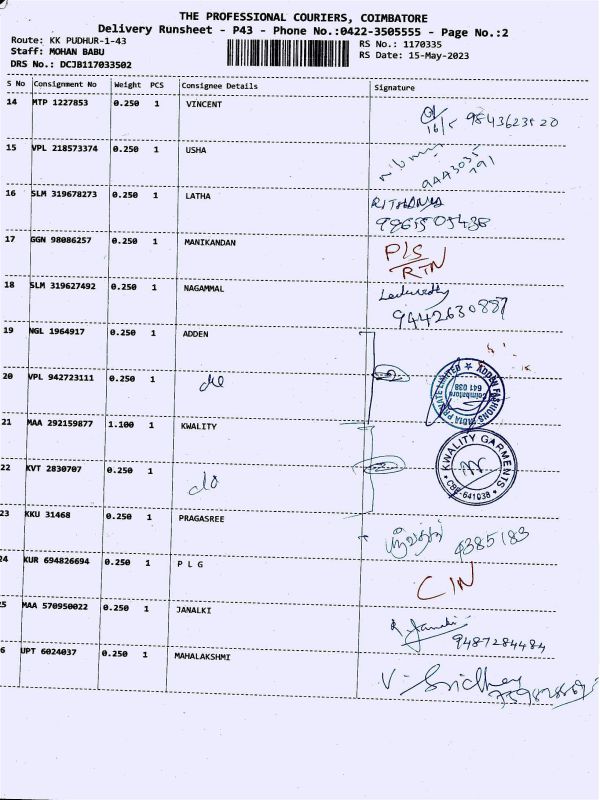 THE PROFESSIONAL COURIERS, COIMBATORE
Delivery Runsheet - P43 - Phone No.:0422-3505555 - Page No.:2
Route: KK PUDHUR-1-43 RS No.: 1170335
Staff: MOHAN BABU RS Date: 15-May-2023
DRS No.: DCJB117033502
S No Consignment No Weight PCS Consignee Details Signature
14 MTP 1227853 0.250 1 VINCENT
16/5
15 VPL 218573374 0.250 1 USHA
16 SLM 319678273 0.250 1 LATHA
17 GGN 98086257 0.250 1 MANIKANDAN P/S
RTN
18 SLM 319627492 0.250 1 NAGAMMAL
9442630887
19 NGL 1964917 0.250 1 ADDEN
20 VPL 942723111 0.250 1 do
ADDEN FASHIONS INDIA PRIVATE LIMITED
Coimbatore
641 038
21 MAA 292159877 1.100 1 KWALITY
KWALITY GARMENTS
CBE-641038
22 KVT 2830707 0.250 1 do
23 KKU 31468 0.250 1 PRAGASREE
4385183
24 KUR 694826694 0.250 1 P L G CIN
25 MAA 570950022 0.250 1 JANALKI
9487284484
6 UPT 6024037 0.250 1 MAHALAKSHMI
V. Sridhey